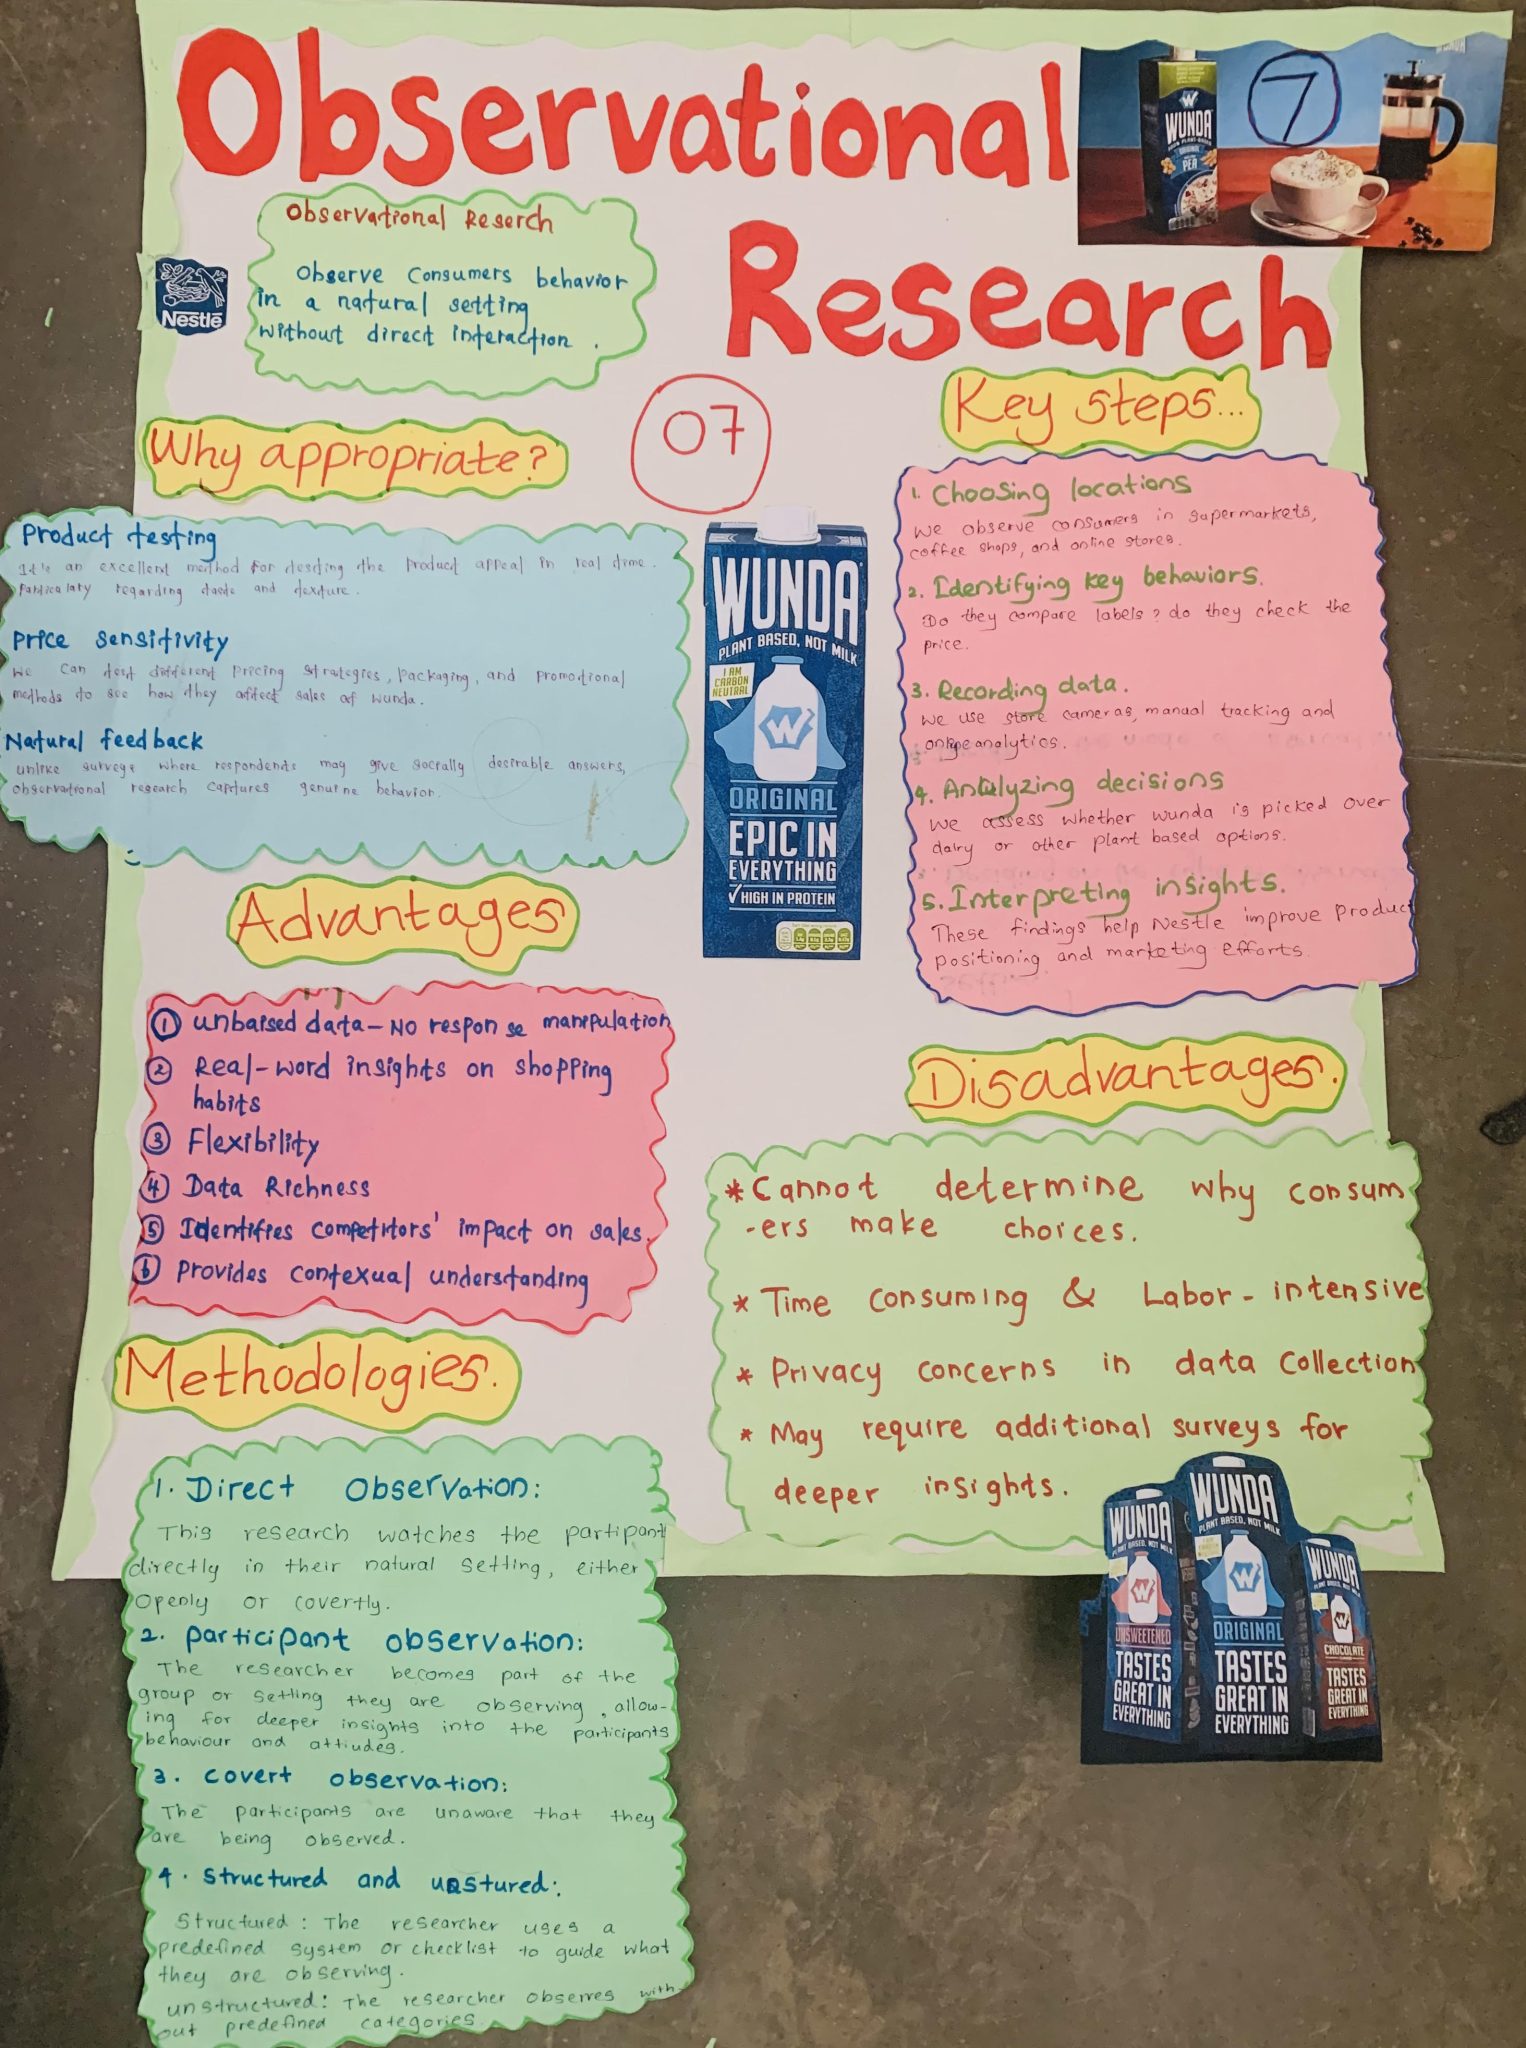 Observational
Research
WUNDA
ORIGINAL
PEA
7
Observational Reserch
Observe Consumers behavior
in a natural setting
without direct interaction .
Nestlé
07
Why appropriate?
Product testing
It is an excellent method for testing the product appeal in real time.
particulary regarding taste and texture.
Price sensitivity
We can test different pricing strategies, packaging, and promotional
methods to see how they affect sales of wunda.
Natural feedback
unlike surveys where respondents may give socially desirable answers,
observational research captures genuine behavior.
WUNDA
PLANT BASED, NOT MILK
I AM
CARBON
NEUTRAL
W
ORIGINAL
EPIC IN
EVERYTHING
✓HIGH IN PROTEIN
Key steps...
1. Choosing locations
We observe consumers in supermarkets,
coffee shops, and online stores.
2. Identifying key behaviors.
Do they compare labels? do they check the
price.
3. Recording data.
We use store cameras, manual tracking and
online analytics.
4. Analyzing decisions
We assess whether wunda is picked over
dairy or other plant based options.
5. Interpreting insights.
These findings help Nestle improve product
positioning and marketing efforts.
Advantages
1 unbaised data - No response manipulation
2 Real-word insights on shopping
habits
3 Flexibility
4 Data Richness
5 Identifies competitors' impact on sales.
6 Provides contexual understanding
Disadvantages.
* Cannot determine why consum
-ers make choices.
* Time consuming & Labor-intensive
* Privacy concerns in data collection
* May require additional surveys for
deeper insights.
Methodologies.
1. Direct Observation:
This research watches the partipant
directly in their natural setting, either
openly or covertly.
2. participant observation:
The researcher becomes part of the
group or setting they are observing, allow-
ing for deeper insights into the participants
behaviour and attiudes.
3. covert observation:
The participants are unaware that they
are being observed.
4. structured and unstured:
Structured: The researcher uses a
predefined system or checklist to guide what
they are observing.
unstructured: The researcher observes with-
out predefined categories.
WUNDA
PLANT BASED, NOT MILK
W
UNSWEETENED
TASTES
GREAT IN
EVERYTHING
WUNDA
PLANT BASED, NOT MILK
W
ORIGINAL
TASTES
GREAT IN
EVERYTHING
WUNDA
PLANT BASED, NOT MILK
W
CHOCOLATE
TASTES
GREAT IN
EVERYTHING